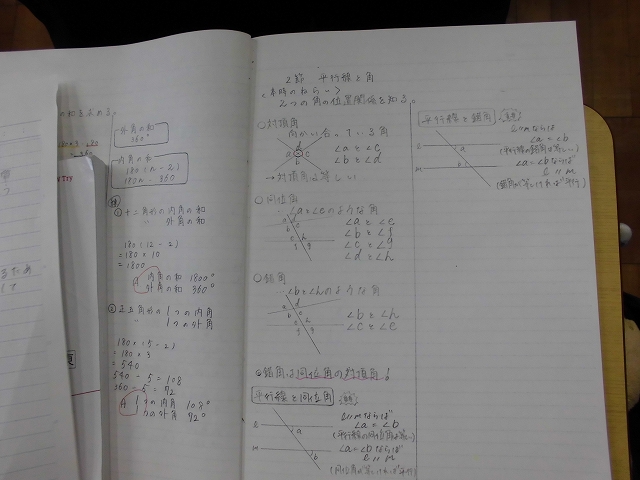 の和を求める。
外角の和
360°
内角の和
180(n-2)
180n-360
① 十二角形の内角の和
〃 外角の和
180(12-2)
=180×10
=1800
A 内角の和 1800°
外角の和 360°
② 正五角形の1つの内角
〃 1つの外角
180×(5-2)
=180×3
=540
540÷5=108
360÷5=72
A 1つの内角 108°
1つの外角 72°
2節 平行線と角
<本時のねらい>
2つの角の位置関係を知る。
○対頂角
向かい合っている角
a b c d
∠aと∠c
∠bと∠d
→対頂角は等しい
○同位角
…∠aと∠eのような角
∠aと∠e
∠bと∠f
∠cと∠g
∠dと∠h
○錯角
…∠bと∠hのような角
∠bと∠h
∠cと∠e
錯角は同位角の対頂角!
平行線と同位角
ℓ
m
a
b
ℓ//mならば
∠a=∠b
(平行線の同位角は等しい)
∠a=∠bならば
ℓ//m
(同位角が等しければ平行)
平行線と錯角
ℓ
m
a
b
ℓ//mならば
∠a=∠b
(平行線の錯角は等しい)
∠a=∠bならば
ℓ//m
(錯角が等しければ平行)